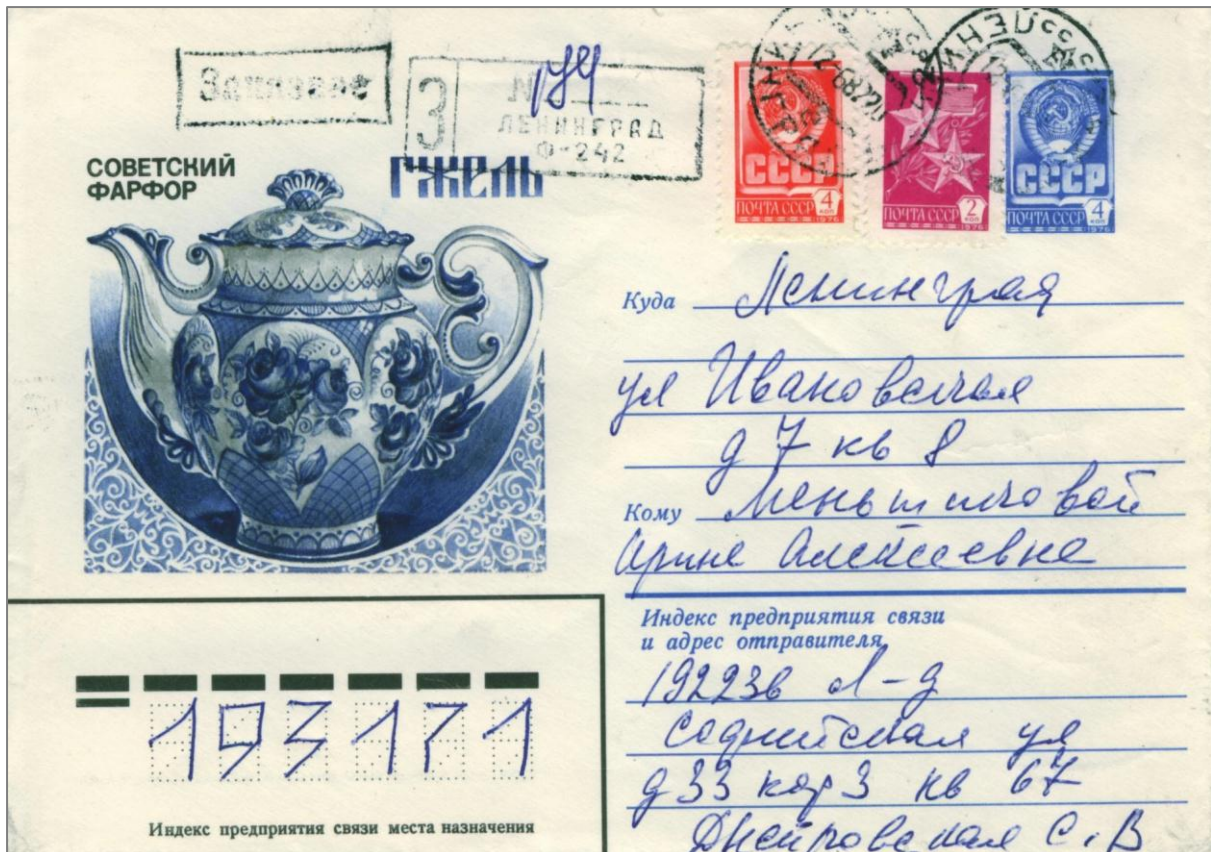 Заказное
З
№ 174
ЛЕНИНГРАД
Ф-242
СОВЕТСКИЙ
ФАРФОР
ГЖЕЛЬ
СССР
ПОЧТА СССР 4 КОП
1976
ПОЧТА СССР 2 КОП
1976
СССР
ПОЧТА СССР 4 КОП
1976
Куда Ленинград
ул Ивановская
д 7 кв 8
Кому Меньшиковой
Ирине Алексеевне
Индекс предприятия связи
и адрес отправителя
192236 Л-д
Софийская ул
д 33 кор 3 кв 67
Днепровская С. В
193171
Индекс предприятия связи места назначения